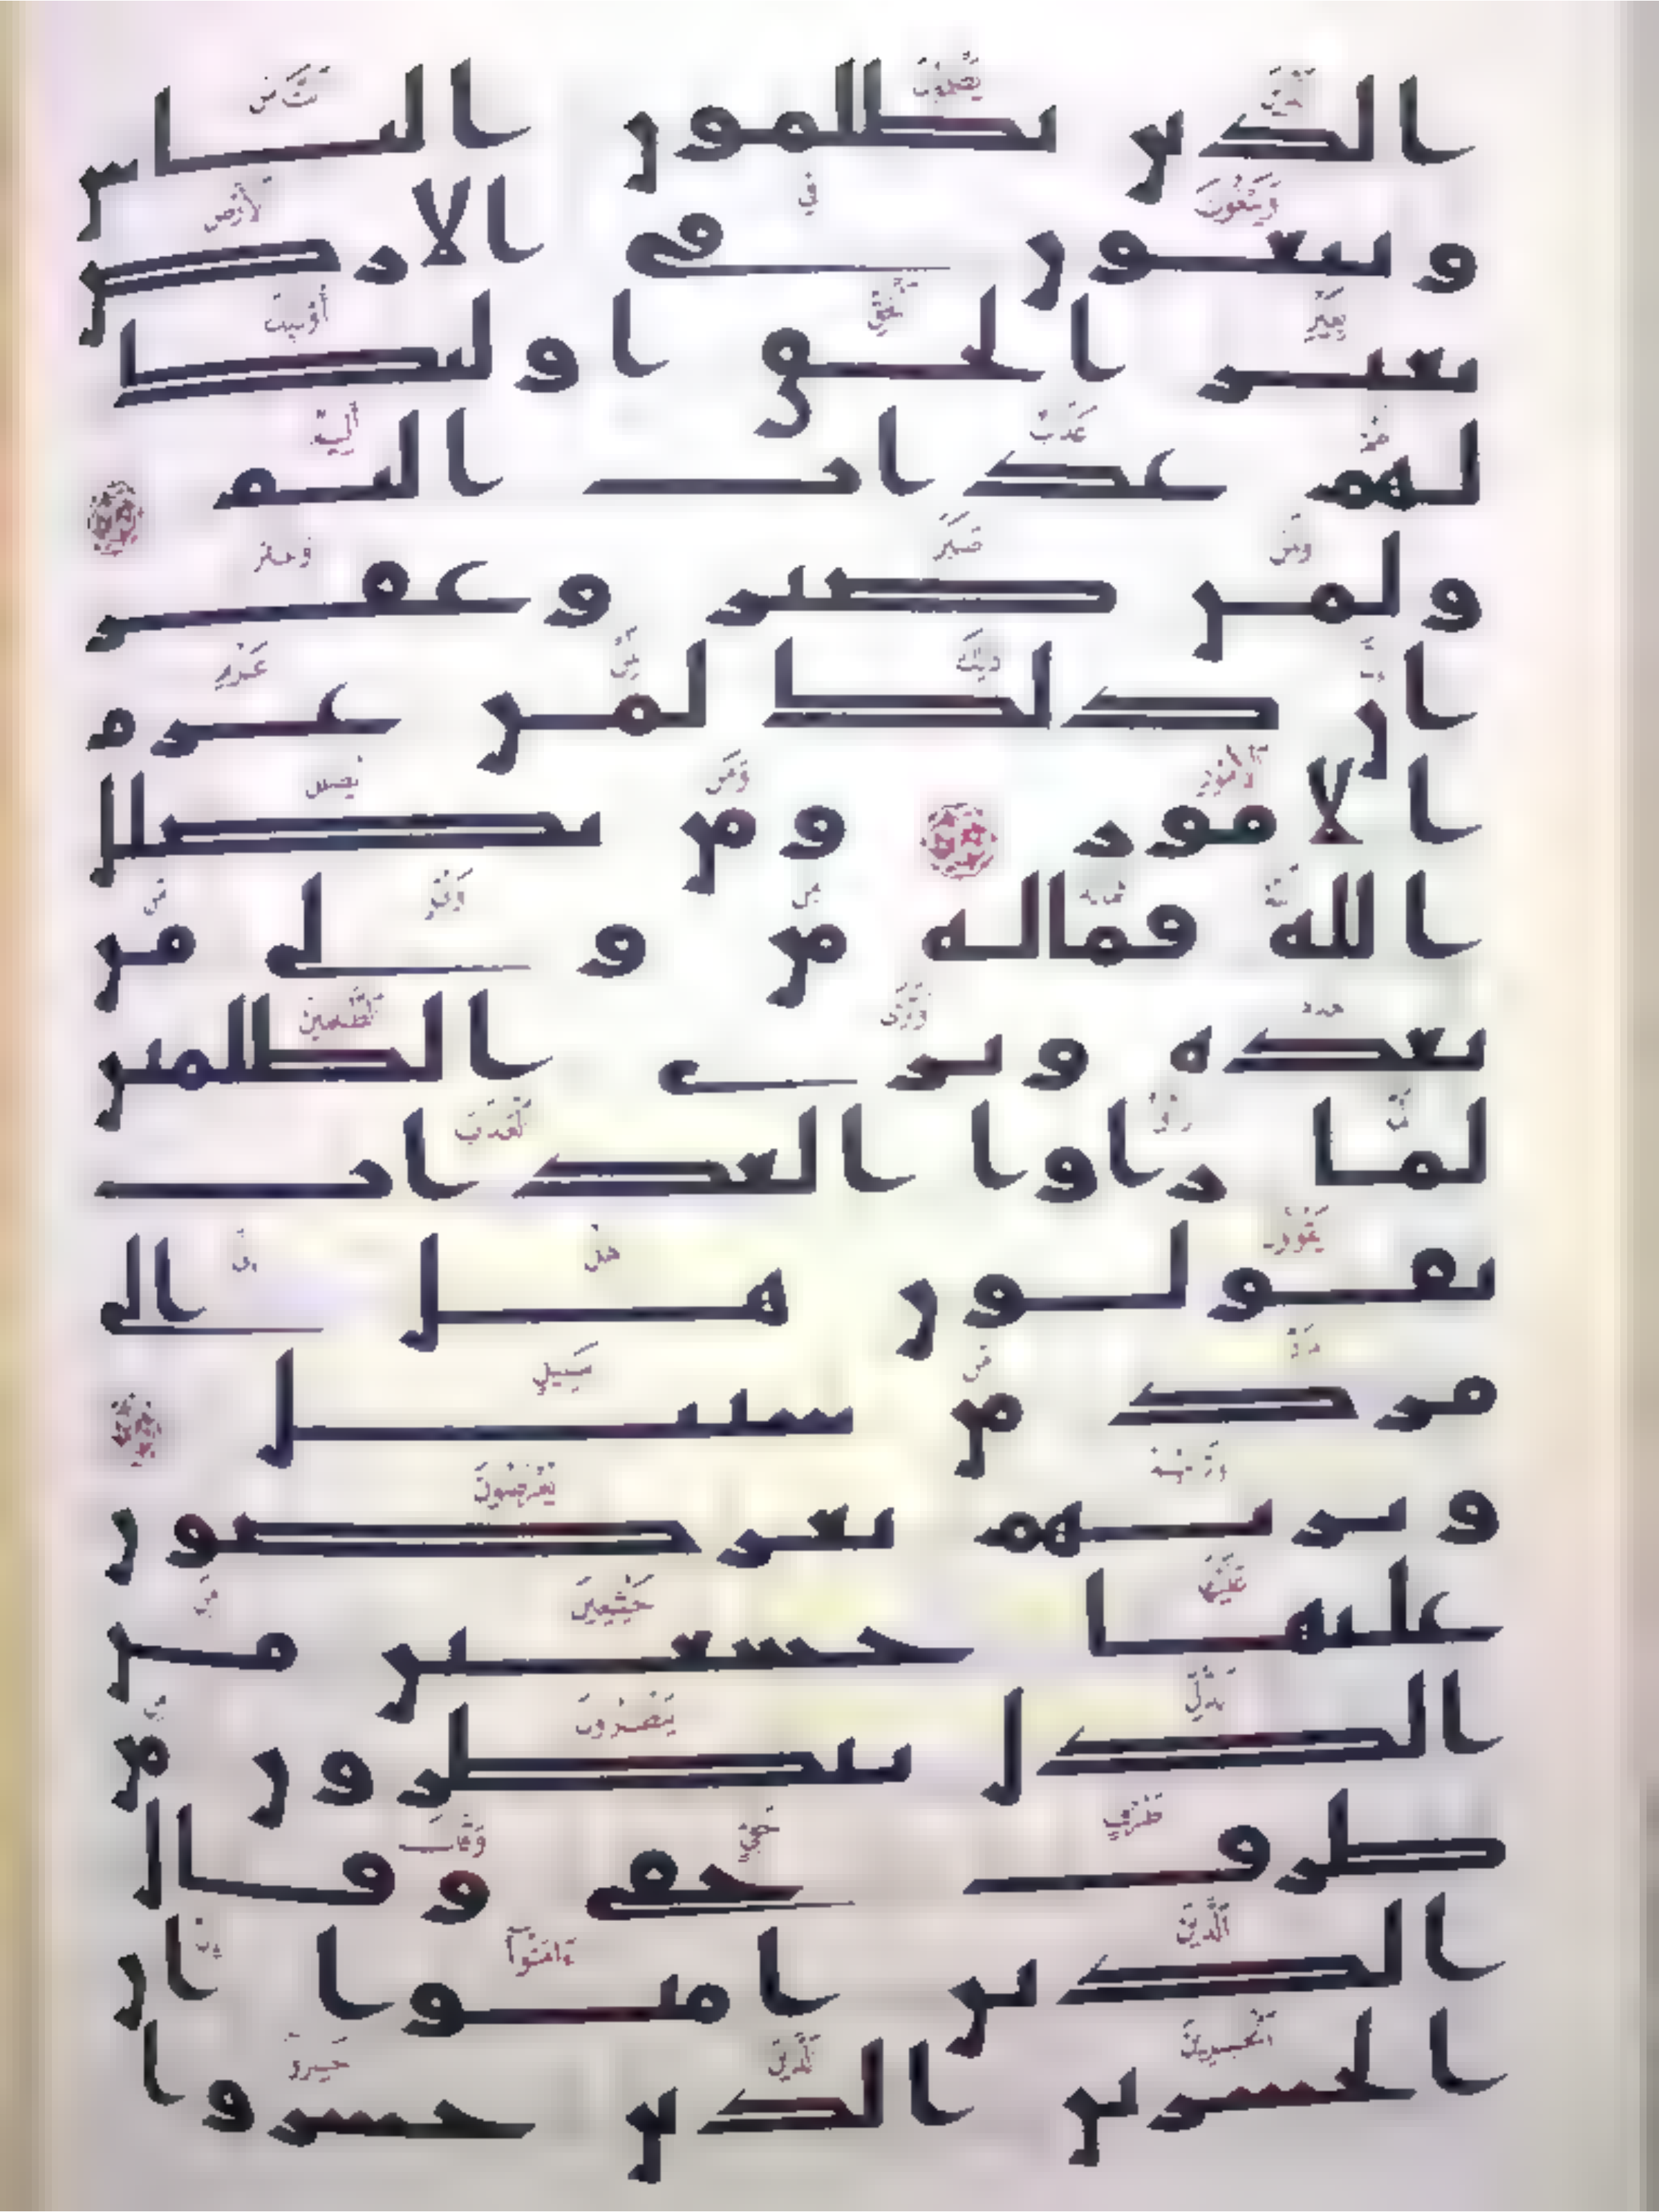 الذين يظلمون الناس
ويبغون في الارض
بغير الحق اولئك
لهم عذاب اليم
ولمن صبر وغفر
ان ذلك لمن عزم
الامور ومن يضلل
الله فما له من ولي من
بعده وترى الظلمين
لما راوا العذاب
يقولون هل الى
مرد من سبيل
وتريهم يعرضون
عليها خشعين من
الذل ينظرون من
طرف خفي وقال
الذين امنوا ان
الخسرين الذين خسروا